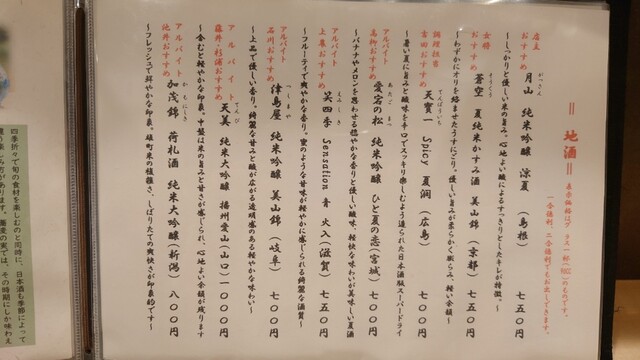 ＝ 地酒 ＝
一合徳利、二合徳利でもお出しできます。
店主
おすすめ
がっさん
月山 純米吟醸 涼夏 （島根） 七五〇円
～しっかりと優しい米の旨み。心地よい酸によるすっきりとしたキレが特徴。～
女将
おすすめ
そうくう
蒼空 夏純米かすみ酒 美山錦 （京都） 七五〇円
～わずかにオリを絡ませたうすにごり。優しい旨みが柔らかく膨らみ、軽い余韻～
調理担当
吉田おすすめ
てんぽういち
天寶一 Spicy 夏潤 （広島） 七〇〇円
～暑い夏に旨みと酸味を辛口でスッキリ楽しむよう造られた日本酒版スーパードライ
アルバイト
高柳おすすめ
あたごのまつ
愛宕の松 純米吟醸 ひと夏の恋（宮城） 七〇〇円
～バナナやメロンを思わせる穏やかな香りと優しい酸味、軽快な味わいが美味しい夏酒
アルバイト
上条おすすめ
えみしき
笑四季 Sensation 青 火入（滋賀） 七五〇円
～フルーティで爽やかな香り。蜜のような甘味が軽やかに感じられる綺麗な酒質～
アルバイト
石川おすすめ
つしまや
津島屋 純米吟醸 美山錦 （岐阜） 七〇〇円
～上品で優しい香り。綺麗な甘みと酸が広がる透明感のある軽やかな味わい～
アルバイト
藤井・杉浦おすすめ
てんび
天美 純米大吟醸 播州愛山（山口）一〇〇〇円
～含むと軽やかな印象。中盤は米の旨みと甘さが感じられ、心地よい余韻が残ります
アルバイト
池井おすすめ
かもにしき
加茂錦 荷札酒 純米大吟醸（新潟） 八〇〇円
～フレッシュで鮮やかな印象。雄町米の複雑さ、しぼりたての爽快さが印象的です～
四季折々で旬の食材を楽しむのと同時に、日本酒も季節によって